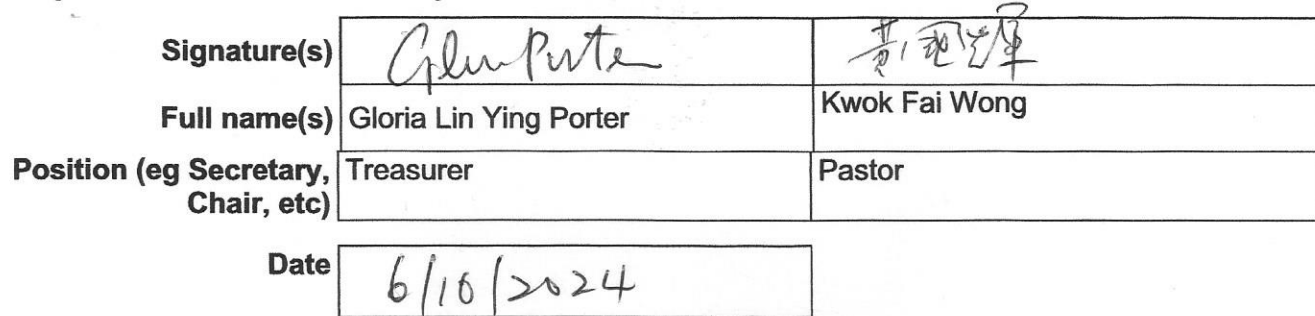 Signature(s) Glin Porter 黃國輝
Full name(s) Gloria Lin Ying Porter Kwok Fai Wong
Position (eg Secretary, Treasurer Pastor
Chair, etc)
Date 6/10/2024